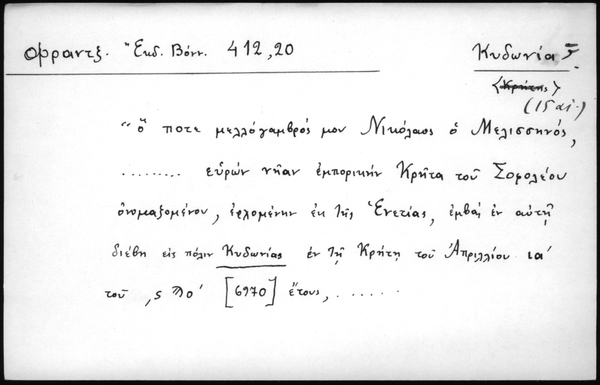 Φραντζ. Ἐκδ. Βόνν. 412,20
Κυδωνία
<Κρήτης>
(15 αἰ.)
"ὅ ποτε μελλόγαμβρός μου Νικόλαος ὁ Μελισσηνός,
......... εὑρὼν νῆαν ἐμπορικὴν Κρῆτα τοῦ Σομολέου
ὀνομαζομένου, ἐρχομένην ἐκ τῆς Ἐνετίας, ἐμβὰς ἐν αὐτῇ
διέβη εἰς πόλιν Κυδωνίας ἐν τῇ Κρήτῃ τοῦ Ἀπριλλίου ια'
τοῦ ,ϛϠο' [6970] ἔτους, . . . . . .